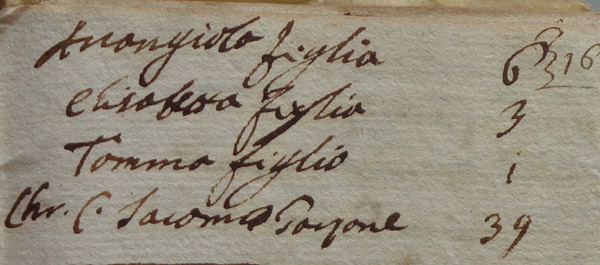 Auangiola figlia 6
316
elisabetta figlia 3
Tomma figlio i
Chr. C. Jacomo 39